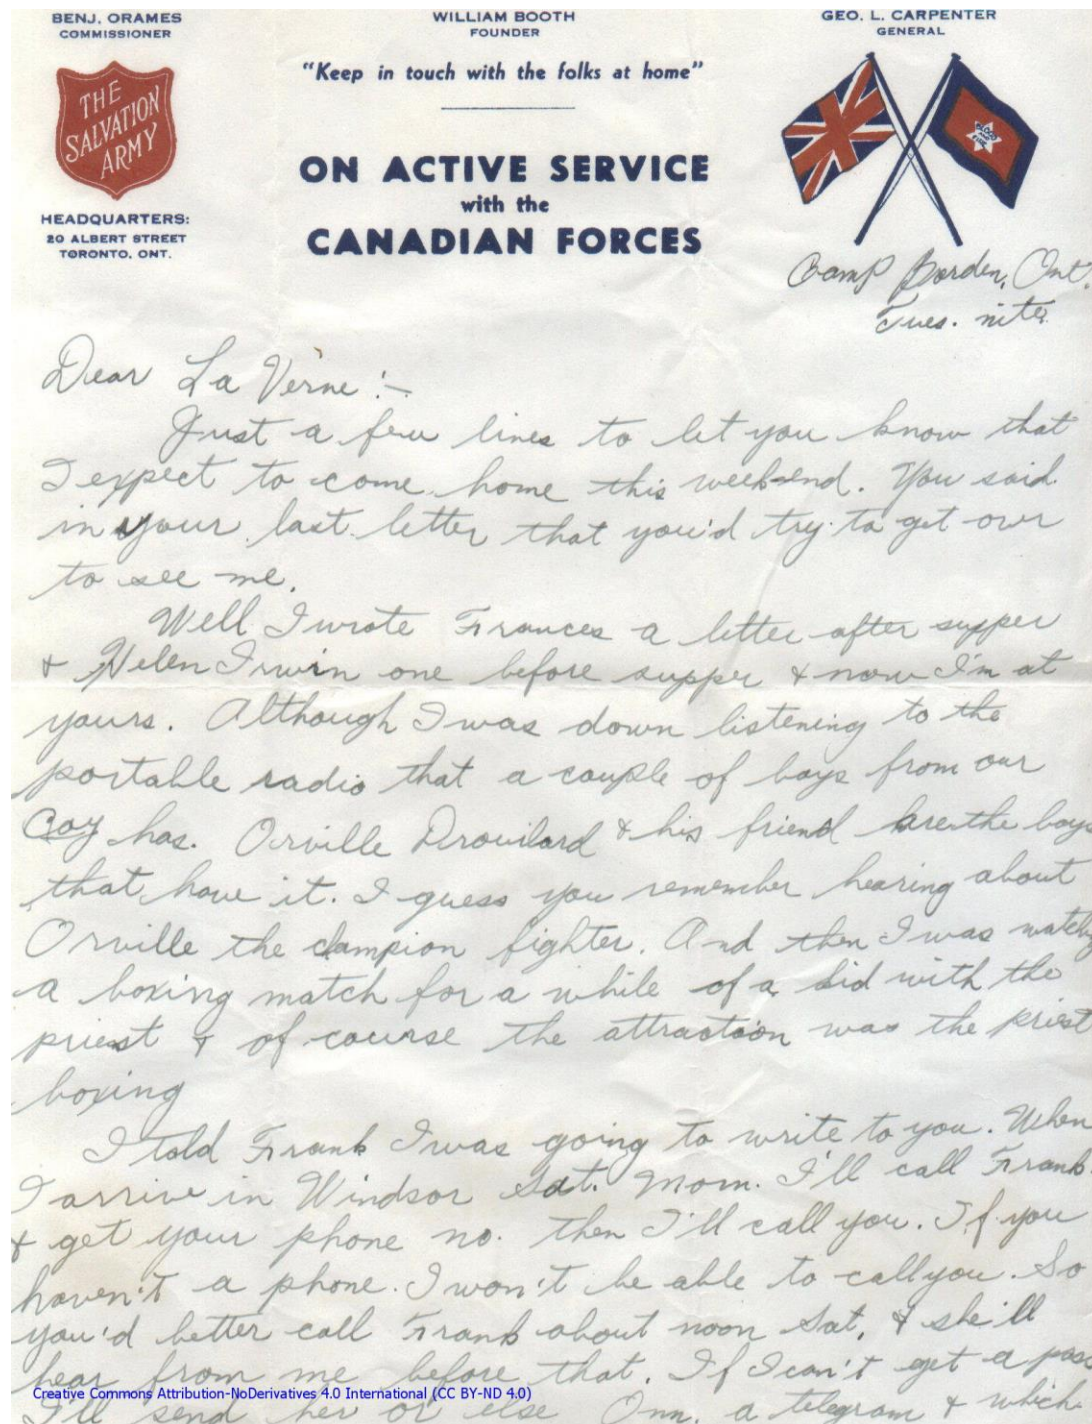 BENJ. ORAMES
COMMISSIONER
WILLIAM BOOTH
FOUNDER
GEO. L. CARPENTER
GENERAL
"Keep in touch with the folks at home"
THE
SALVATION
ARMY
BLOOD
AND
FIRE
ON ACTIVE SERVICE
with the
CANADIAN FORCES
HEADQUARTERS:
20 ALBERT STREET
TORONTO, ONT.
Camp Borden, Ont.
Tues. nite
Dear La Verne:-
Just a few lines to let you know that
I expect to come home this week-end. You said
in your last letter that you'd try to get over
to see me.
Well I wrote Frances a letter after supper
& Helen Irwin one before supper & now I'm at
yours. Although I was down listening to the
portable radio that a couple of boys from our
Coy has. Orville Drouilard & his friend are the boys
that have it. I guess you remember hearing about
Orville the champion fighter. And then I was watchg
a boxing match for a while of a kid with the
priest & of course the attraction was the priest
boxing
I told Frank I was going to write to you. When
I arrive in Windsor Sat. Morn. I'll call Frank
& get your phone no. then I'll call you. If you
haven't a phone. I won't be able to call you. So
you'd better call Frank about noon Sat, & she'll
hear from me before that. If I can't get a pass
I'll send her or else Onn. a telegram & which
Creative Commons Attribution-NoDerivatives 4.0 International (CC BY-ND 4.0)